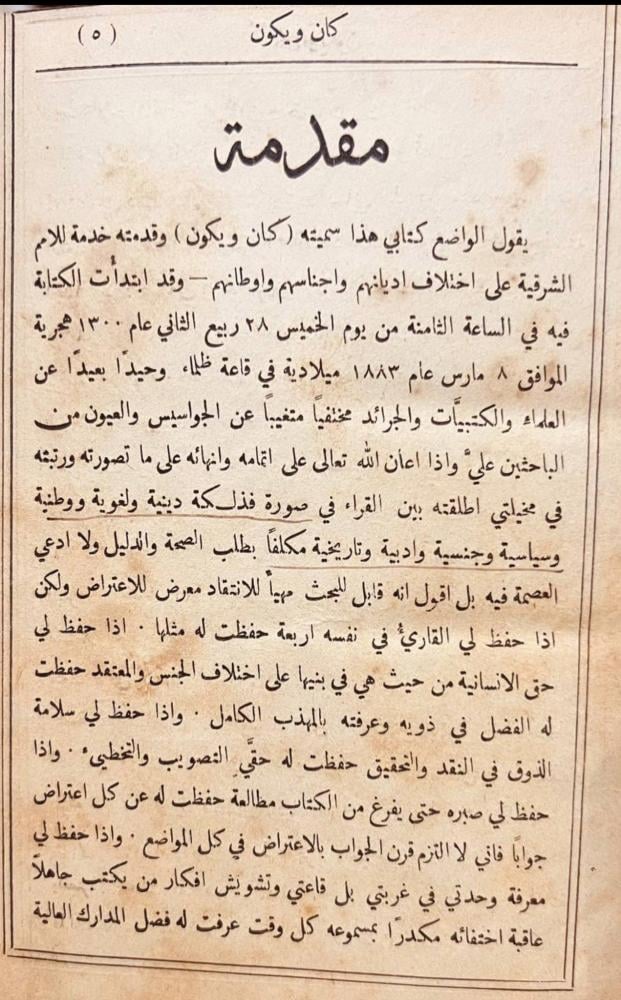 كان ويكون (٥)
مقدمة
يقول الواضع كتابي هذا سميته (كان ويكون) وقدمته خدمة للامم
الشرقية على اختلاف اديانهم واجناسهم واوطانهم — وقد ابتدأت الكتابة
فيه في الساعة الثامنة من يوم الخميس ٢٨ ربيع الثاني عام ١٣٠٠ هجرية
الموافق ٨ مارس عام ١٨٨٣ ميلادية في قاعة ظلماء وحيدًا بعيدًا عن
العلماء والكتبيَّات والجرائد مختفيًا متغيبًا عن الجواسيس والعيون من
الباحثين عليَّ واذا اعان الله تعالى على اتمامه وانهائه على ما تصورته ورتبته
في مخيلتي اطلقته بين القراء في صورة فذلكة دينية ولغوية ووطنية
وسياسية وجنسية وادبية وتاريخية مكلفًا بطلب الصحة والدليل ولا ادعي
العصمة فيه بل اقول انه قابل للبحث مهيأ للانتقاد معرض للاعتراض ولكن
اذا حفظ لي القارئُ في نفسه اربعة حفظت له مثلها · اذا حفظ لي
حق الانسانية من حيث هي في بنيها على اختلاف الجنس والمعتقد حفظت
له الفضل في ذويه وعرفته بالمهذب الكامل · واذا حفظ لي سلامة
الذوق في النقد والتحقيق حفظت له حقَّي التصويب والتخطيء · واذا
حفظ لي صبره حتى يفرغ من الكتاب مطالعة حفظت له عن كل اعتراض
جوابًا فاني لا التزم قرن الجواب بالاعتراض في كل المواضع · واذا حفظ لي
معرفة وحدتي في غربتي بل قاعتي وتشويش افكار من يكتب جاهلًا
عاقبة اختفائه مكدرًا بمسموعه كل وقت عرفت له فضل المدارك العالية